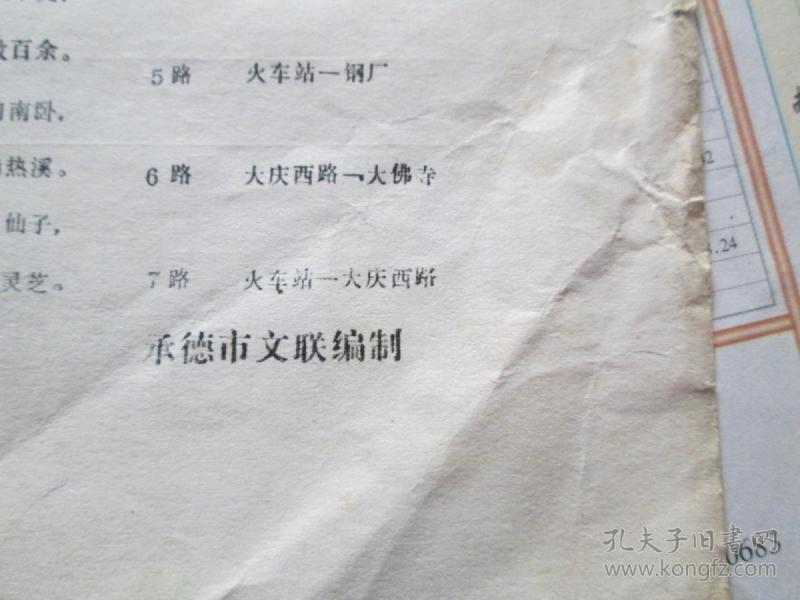 百余。
5路 火车站—钢厂
南卧，
热溪。
6路 大庆西路—大佛寺
仙子，
灵芝。
7路 火车站—大庆西路
承德市文联编制
.24
0683
孔夫子旧書网
www.kongfz.com